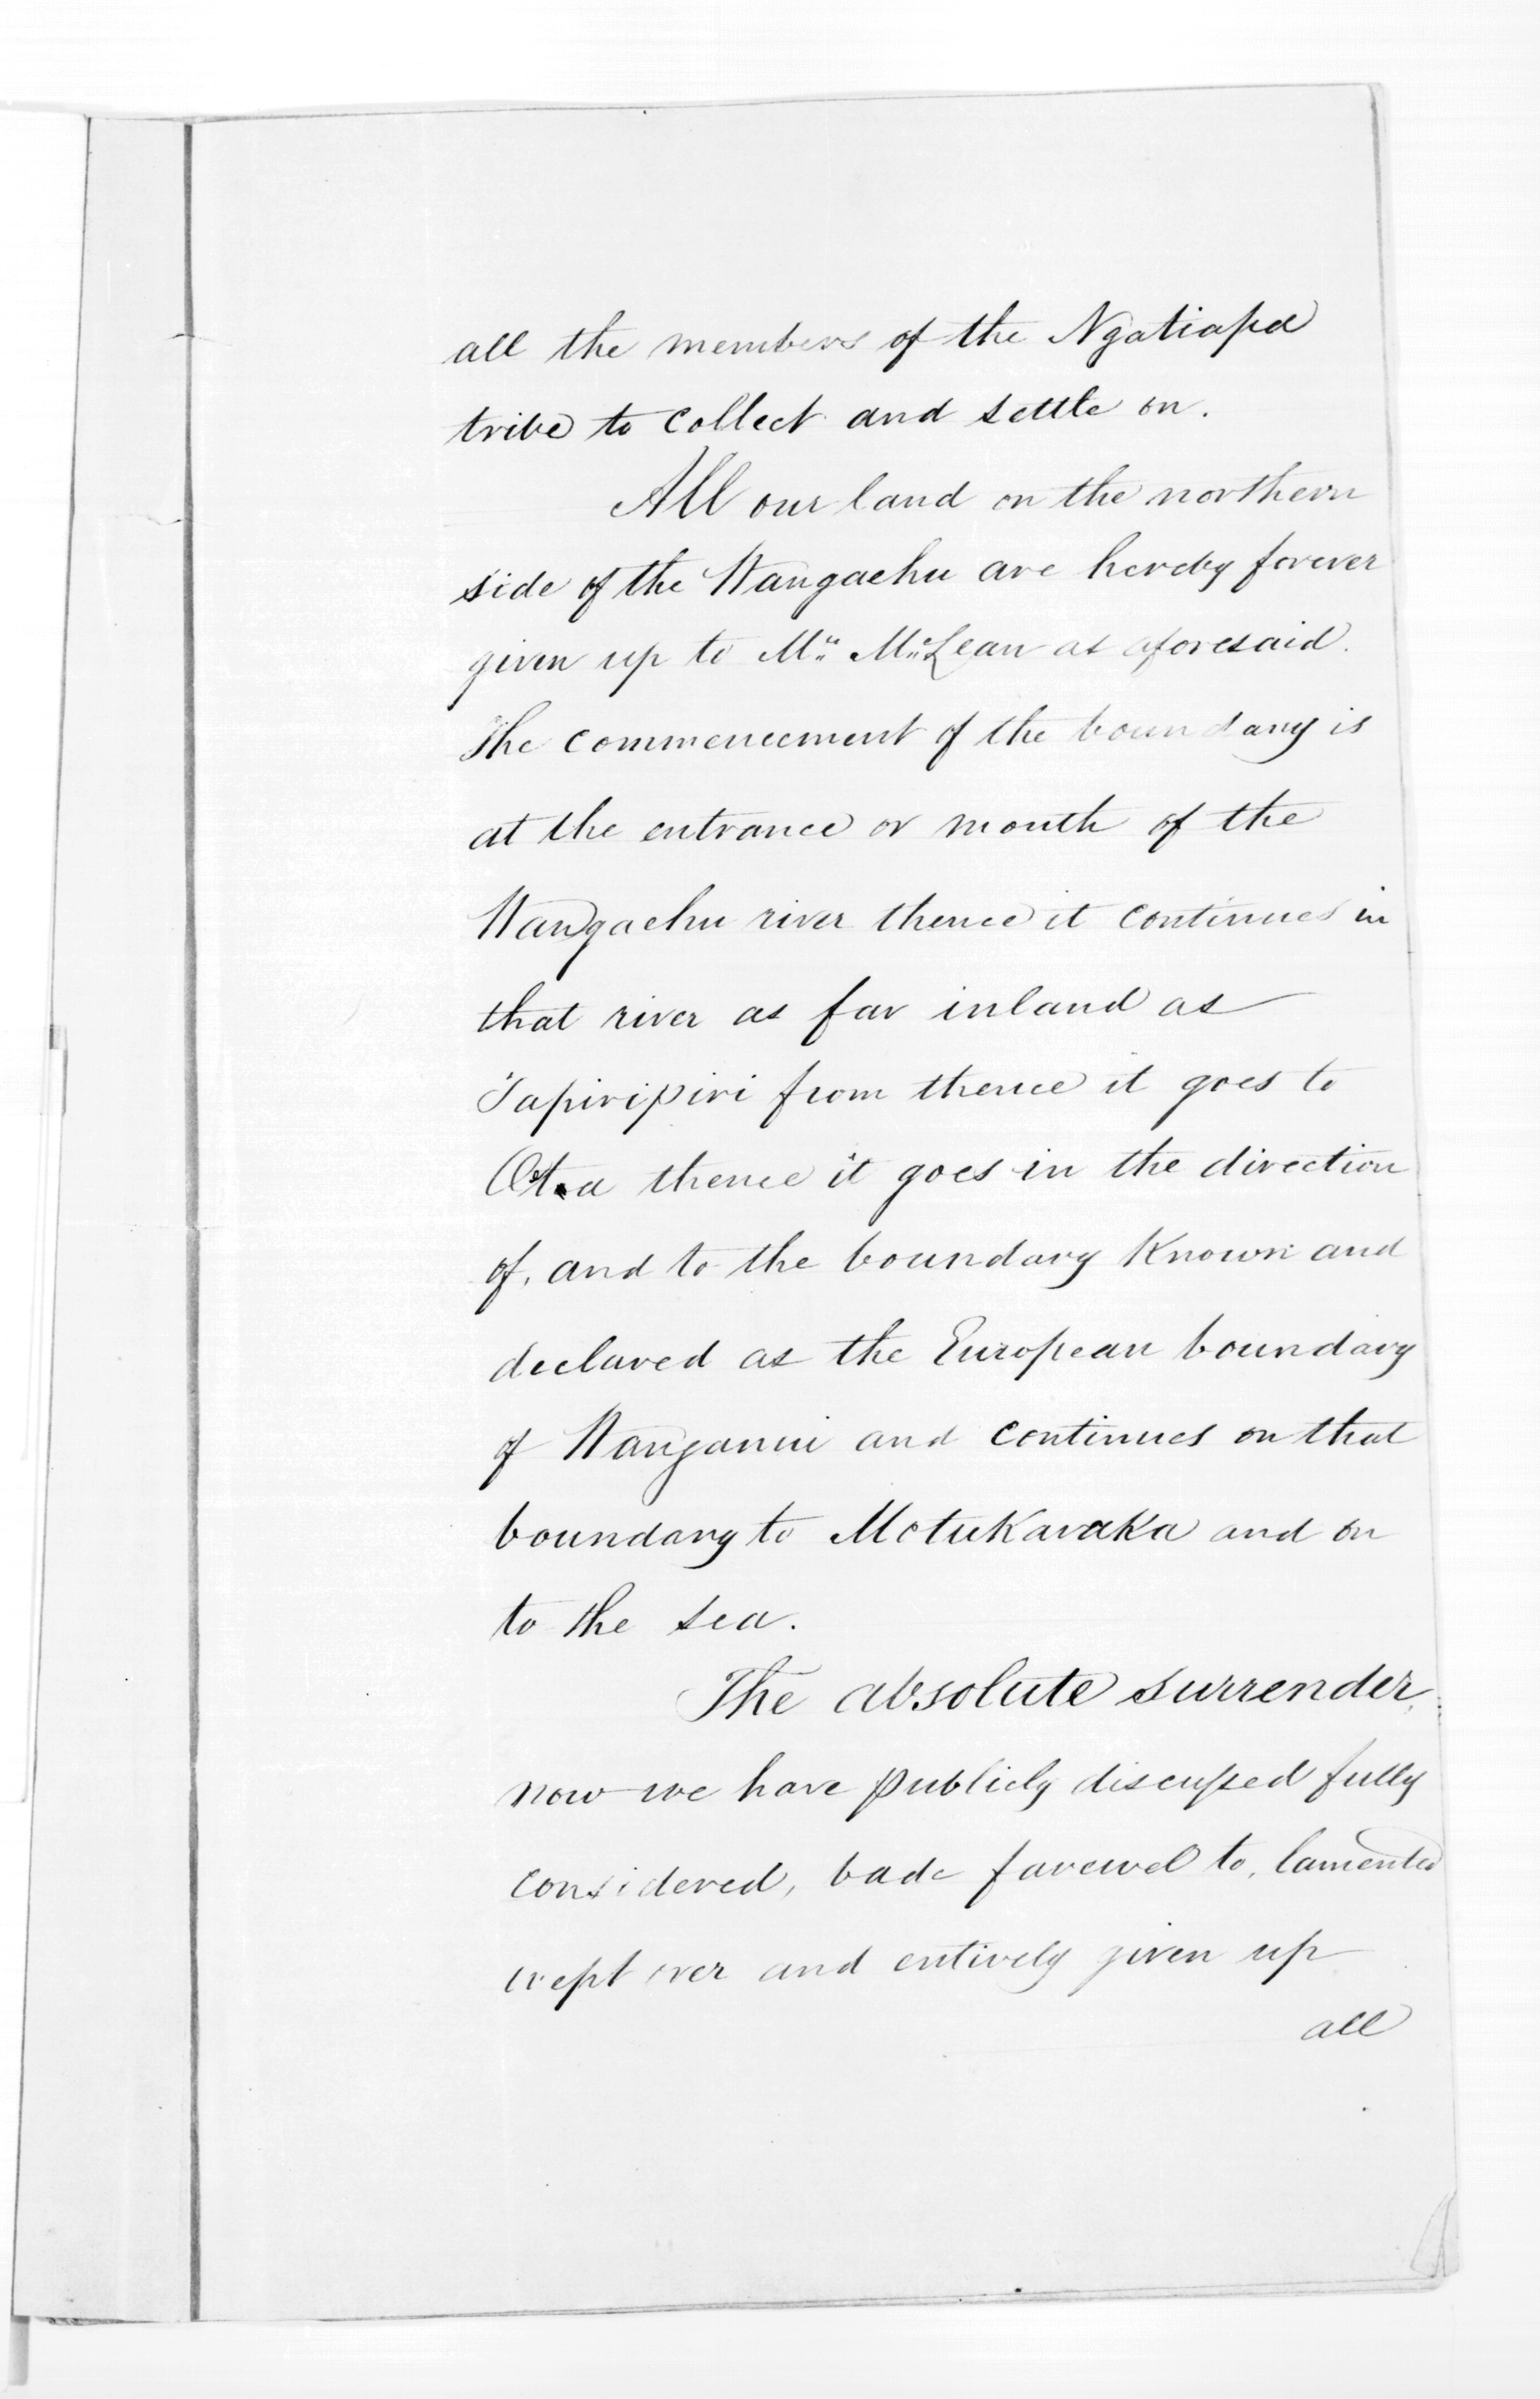 all the members of the Ngatiapa
tribe to collect and settle on.
All our land on the northern
side of the Wangaehu are hereby forever
given up to Mr. McLean as aforesaid.
The commencement of the boundary is
at the entrance or mouth of the
Wangaehu river thence it continues in
that river as far inland as
Tapiripiri from thence it goes to
thence it goes in the direction
of, and to the boundary Known and
declared as the European boundary
of Wanganui and continues on that
boundary to Motukaraka and on
to the sea.
The absolute surrender,
now we have publicly discussed fully
considered, bade farewel to, lamented
wept over and entirely given up
all